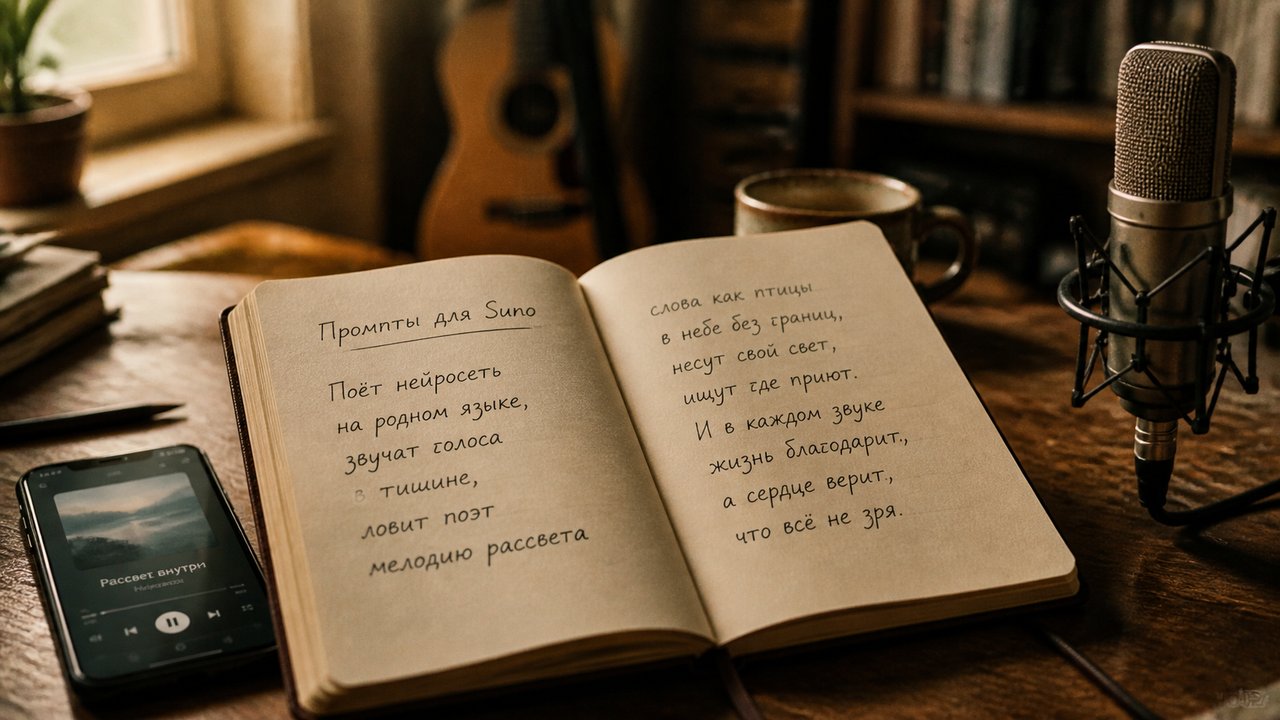 Промпты для Suno
Поёт нейросеть
на родном языке,
звучат голоса
в тишине,
ловит поэт
мелодию рассвета
слова как птицы
в небе без границ,
несут свой свет,
ищут где приют.
И в каждом звуке
жизнь благодарит.,
а сердце верит.,
что всё не зря.
Рассвет внутри